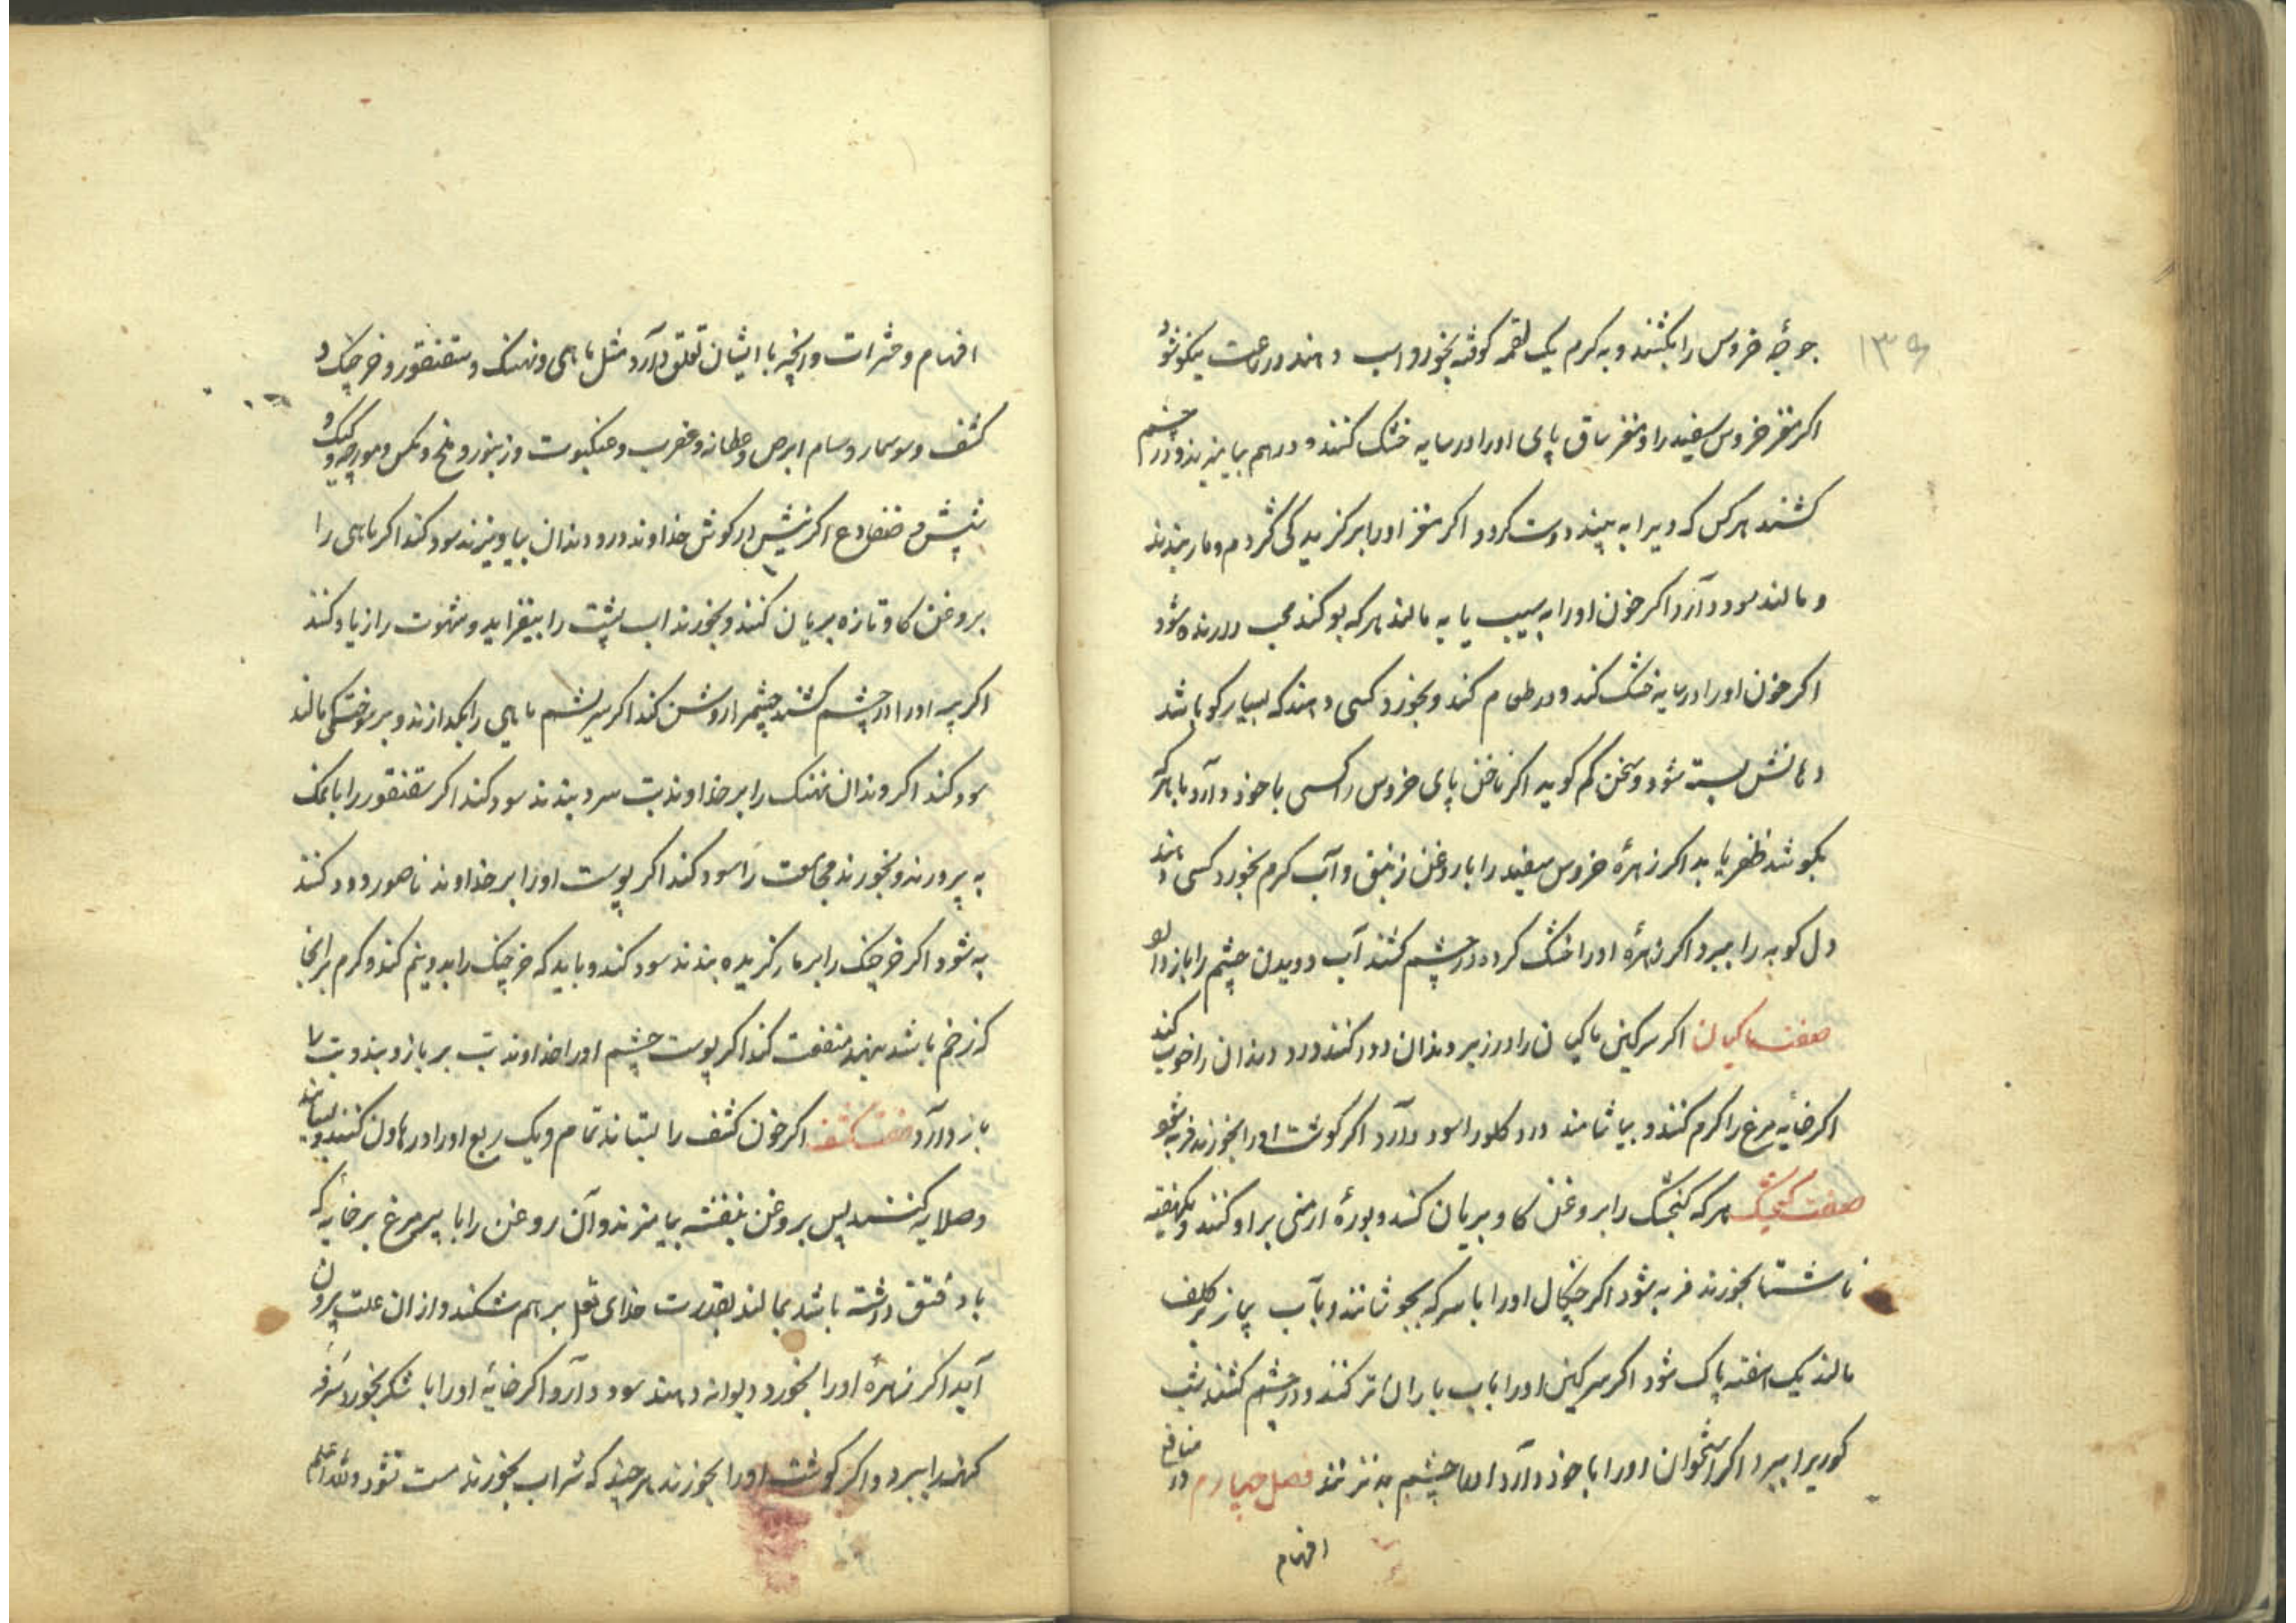 ۱۳۹
جوجهٔ خروس را بکشند و به کرم یک لقمه کوفته بخورد و اسب دهند در ساعت نیکو شود
اکر مغز خروس سفید را و مغز ساق پای او را در سایه خشک کنند و در هم بیامیزند و در چشم
کشند هر کس که ویرا به بیند دوست کردد اکر مغز او را بر کزیدگی کژدم و مار بندند
و مالند سود دارد اکر خون او را به سیب یا به مالند هر که بو کند محب دارنده شود
اکر خون او را در سایه خشک کند و در طعام کند و بخورد کسی دهند که بسیار کو باشد
دهانش بسته شود و سخن کم کوید اکر ناخن پای خروس را کسی با خود دارد با هر که
بکوشد ظفر یابد اکر زهرهٔ خروس سفید را با روغن زنبق و آب کرم بخورد کسی دهند
دل کوبه را ببرد اکر زهرهٔ او را خشک کرده در چشم کشند آب دویدن چشم را باز دارد
صفت ماکیان اکر سرکین ماکیان را در زیر دندان دود کنند درد دندان را خوب کند
اکر خایه مرغ را کرم کنند و بیاشامند درد کلو را سود دارد اکر کوشت او را بخورند فربه شود
صفت کنجشک هر که کنجشک را بروغن کاو بریان کند و بورهٔ ارمنی بر او کنند و یکهفته
ناشتا بخورند فربه شود اکر چنکال او را با سرکه بجوشانند و بآب پیاز بر کلف
مالند یک هفته پاک شود اکر سرکین او را باب باران تر کنند و در چشم کشند شب
کوریرا ببرد اکر استخوان او را با خود دارد او را چشم بد نرسد فصل چهارم در منافع
افهام
افهام و حشرات و آنچه با ایشان تعلق دارد مثل ماهی و نهنک و سقنقور و خرچنک و
کشف و سوسمار و سام ابرص و عطانه و عقرب و عنکبوت و زنبور و ملخ و مکس و مورچه و کیک و
شپش و ضفادع اکر نیش در کوش خداوند درد دندان بیاویزند سود کند اکر ماهی را
بروغن کاو تازه بریان کنند و بخورند اب پشت را بیفزاید و شهوت را زیاد کند
اکر پیه او را در چشم کشند چشم را روشن کند اکر سریشم ماهی را بکدازند و بر سوختکی مالند
سود کند اکر دندان نهنک را بر خداوند تب سرد بندند سود کند اکر سقنقور را با نمک
به پرورند و بخورند مجامعت را سود کند اکر پوست او را بر خداوند ناصور دود کنند
به شود اکر خرچنک را بر مار کزیده بندند سود کند و باید که خرچنک را بدو نیم کند و کرم بر انجا
که زخم باشد نهند منفعت کند اکر پوست چشم او را خداوند تب بر بازو بندد تب را
باز دارد صفت کشف اکر خون کشف را بستانند تمام و یک ربع او را در هاون کنند و بسایند
و صلایه کنند پس بروغن بنفشه بیامیزند و آن روغن را با پر مرغ بر خایه که
باد فتق داشته باشد بمالند بقدرت خدای تعلی بر هم شکند و از ان علت بیرون
آید اکر زهرهٔ او را بخورد دیوانه دهند سود دارد اکر خایهٔ او را با شکر بخورد سرفه
کهنه را ببرد و اکر کوشت او را بخورند هر چند که شراب بخورند مست نشود والله اعلم